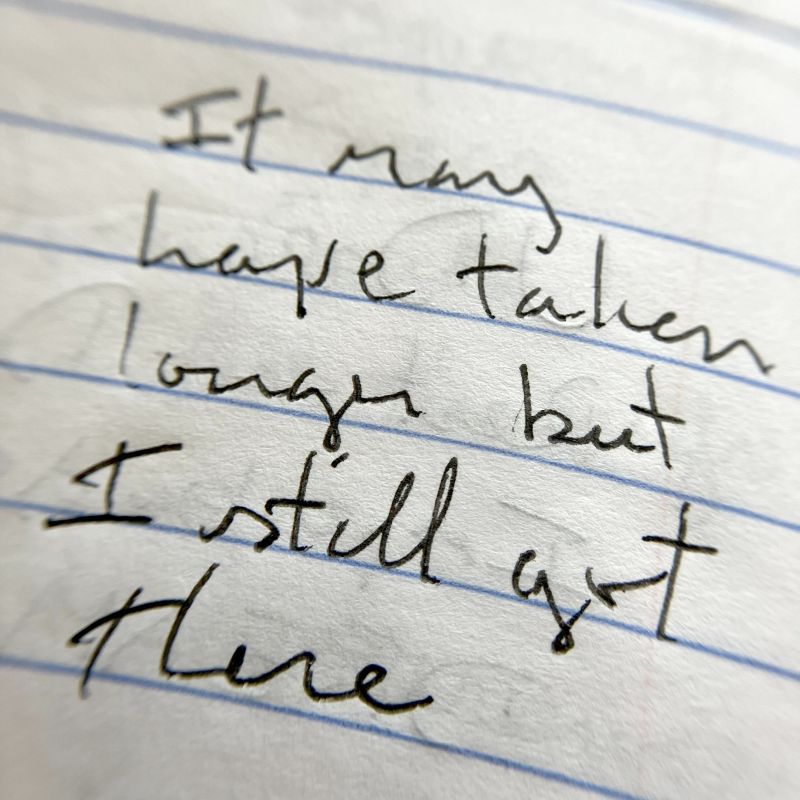 It may
have taken
longer but
I still got
there